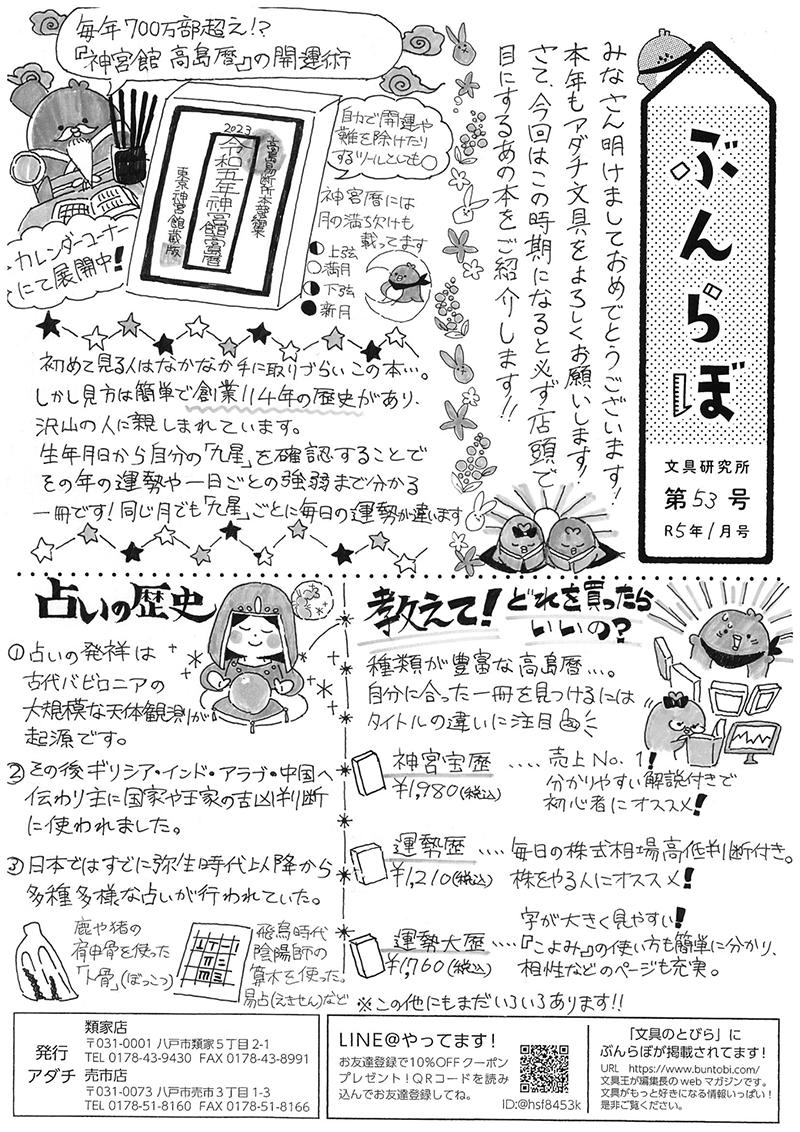 ぶんらぼ
文具研究所
第53号
R5年1月号
みなさん明けましておめでとうございます!
本年もアダチ文具をよろしくお願いします!
さて、今回はこの時期になると必ず店頭で
目にするあの本をご紹介します!!
毎年700万部超え!?
『神宮館 高島暦』の開運術
自分で開運や
難を除けたり
するツールとしても○
2023
高島易断所本部編纂
令和五年神宮館寳暦
東京神宮館蔵版
カレンダーコーナー
にて展開中!
神宮暦には
月の満ち欠けも
載ってます
上弦
満月
下弦
新月
初めて見る人はなかなか手に取りづらいこの本…。
しかし見方は簡単で創業114年の歴史があり、
沢山の人に親しまれています。
生年月日から自分の「九星」を確認することで
その年の運勢や一日ごとの強弱まで分かる
一冊です!同じ月でも「九星」ごとに毎日の運勢が違います
占いの歴史
①占いの発祥は
古代バビロニアの
大規模な天体観測が
起源です。
②その後ギリシア・インド・アラブ・中国へ
伝わり主に国家や王家の吉凶判断
に使われました。
③日本ではすでに弥生時代以降から
多種多様な占いが行われていた。
鹿や猪の
肩甲骨を使った
「卜骨」(ぼっこつ)
飛鳥時代
陰陽師の
算木を使った。
易占(えきせん)など
教えて!どれを買ったら
いいの?
種類が豊富な高島暦…。
自分に合った一冊を見つけるには
タイトルの違いに注目
神宮宝歴
¥1,980(税込)
‥‥売上No.1!
分かりやすい解説付きで
初心者にオススメ!
運勢歴
¥1,210(税込)
‥‥毎日の株式相場高低判断付き。
株をやる人にオススメ!
運勢大歴
¥1,760(税込)
字が大きく見やすい!
‥‥『こよみ』の使い方も簡単に分かり、
相性などのページも充実。
※この他にもまだいろいろあります!!
発行
アダチ
類家店
〒031-0001 八戸市類家5丁目2-1
TEL 0178-43-9430 FAX 0178-43-8991
売市店
〒031-0073 八戸市売市3丁目1-3
TEL 0178-51-8160 FAX 0178-51-8166
LINE@やってます!
お友達登録で10%OFFクーポン
プレゼント!QRコードを読み
込んでお友達登録してね。
ID:@hsf8453k
「文具のとびら」に
ぶんらぼが掲載されてます!
URL https://www.buntobi.com/
文具王が編集長のwebマガジンです。
文具がもっと好きになる情報いっぱい!
是非ご覧ください。